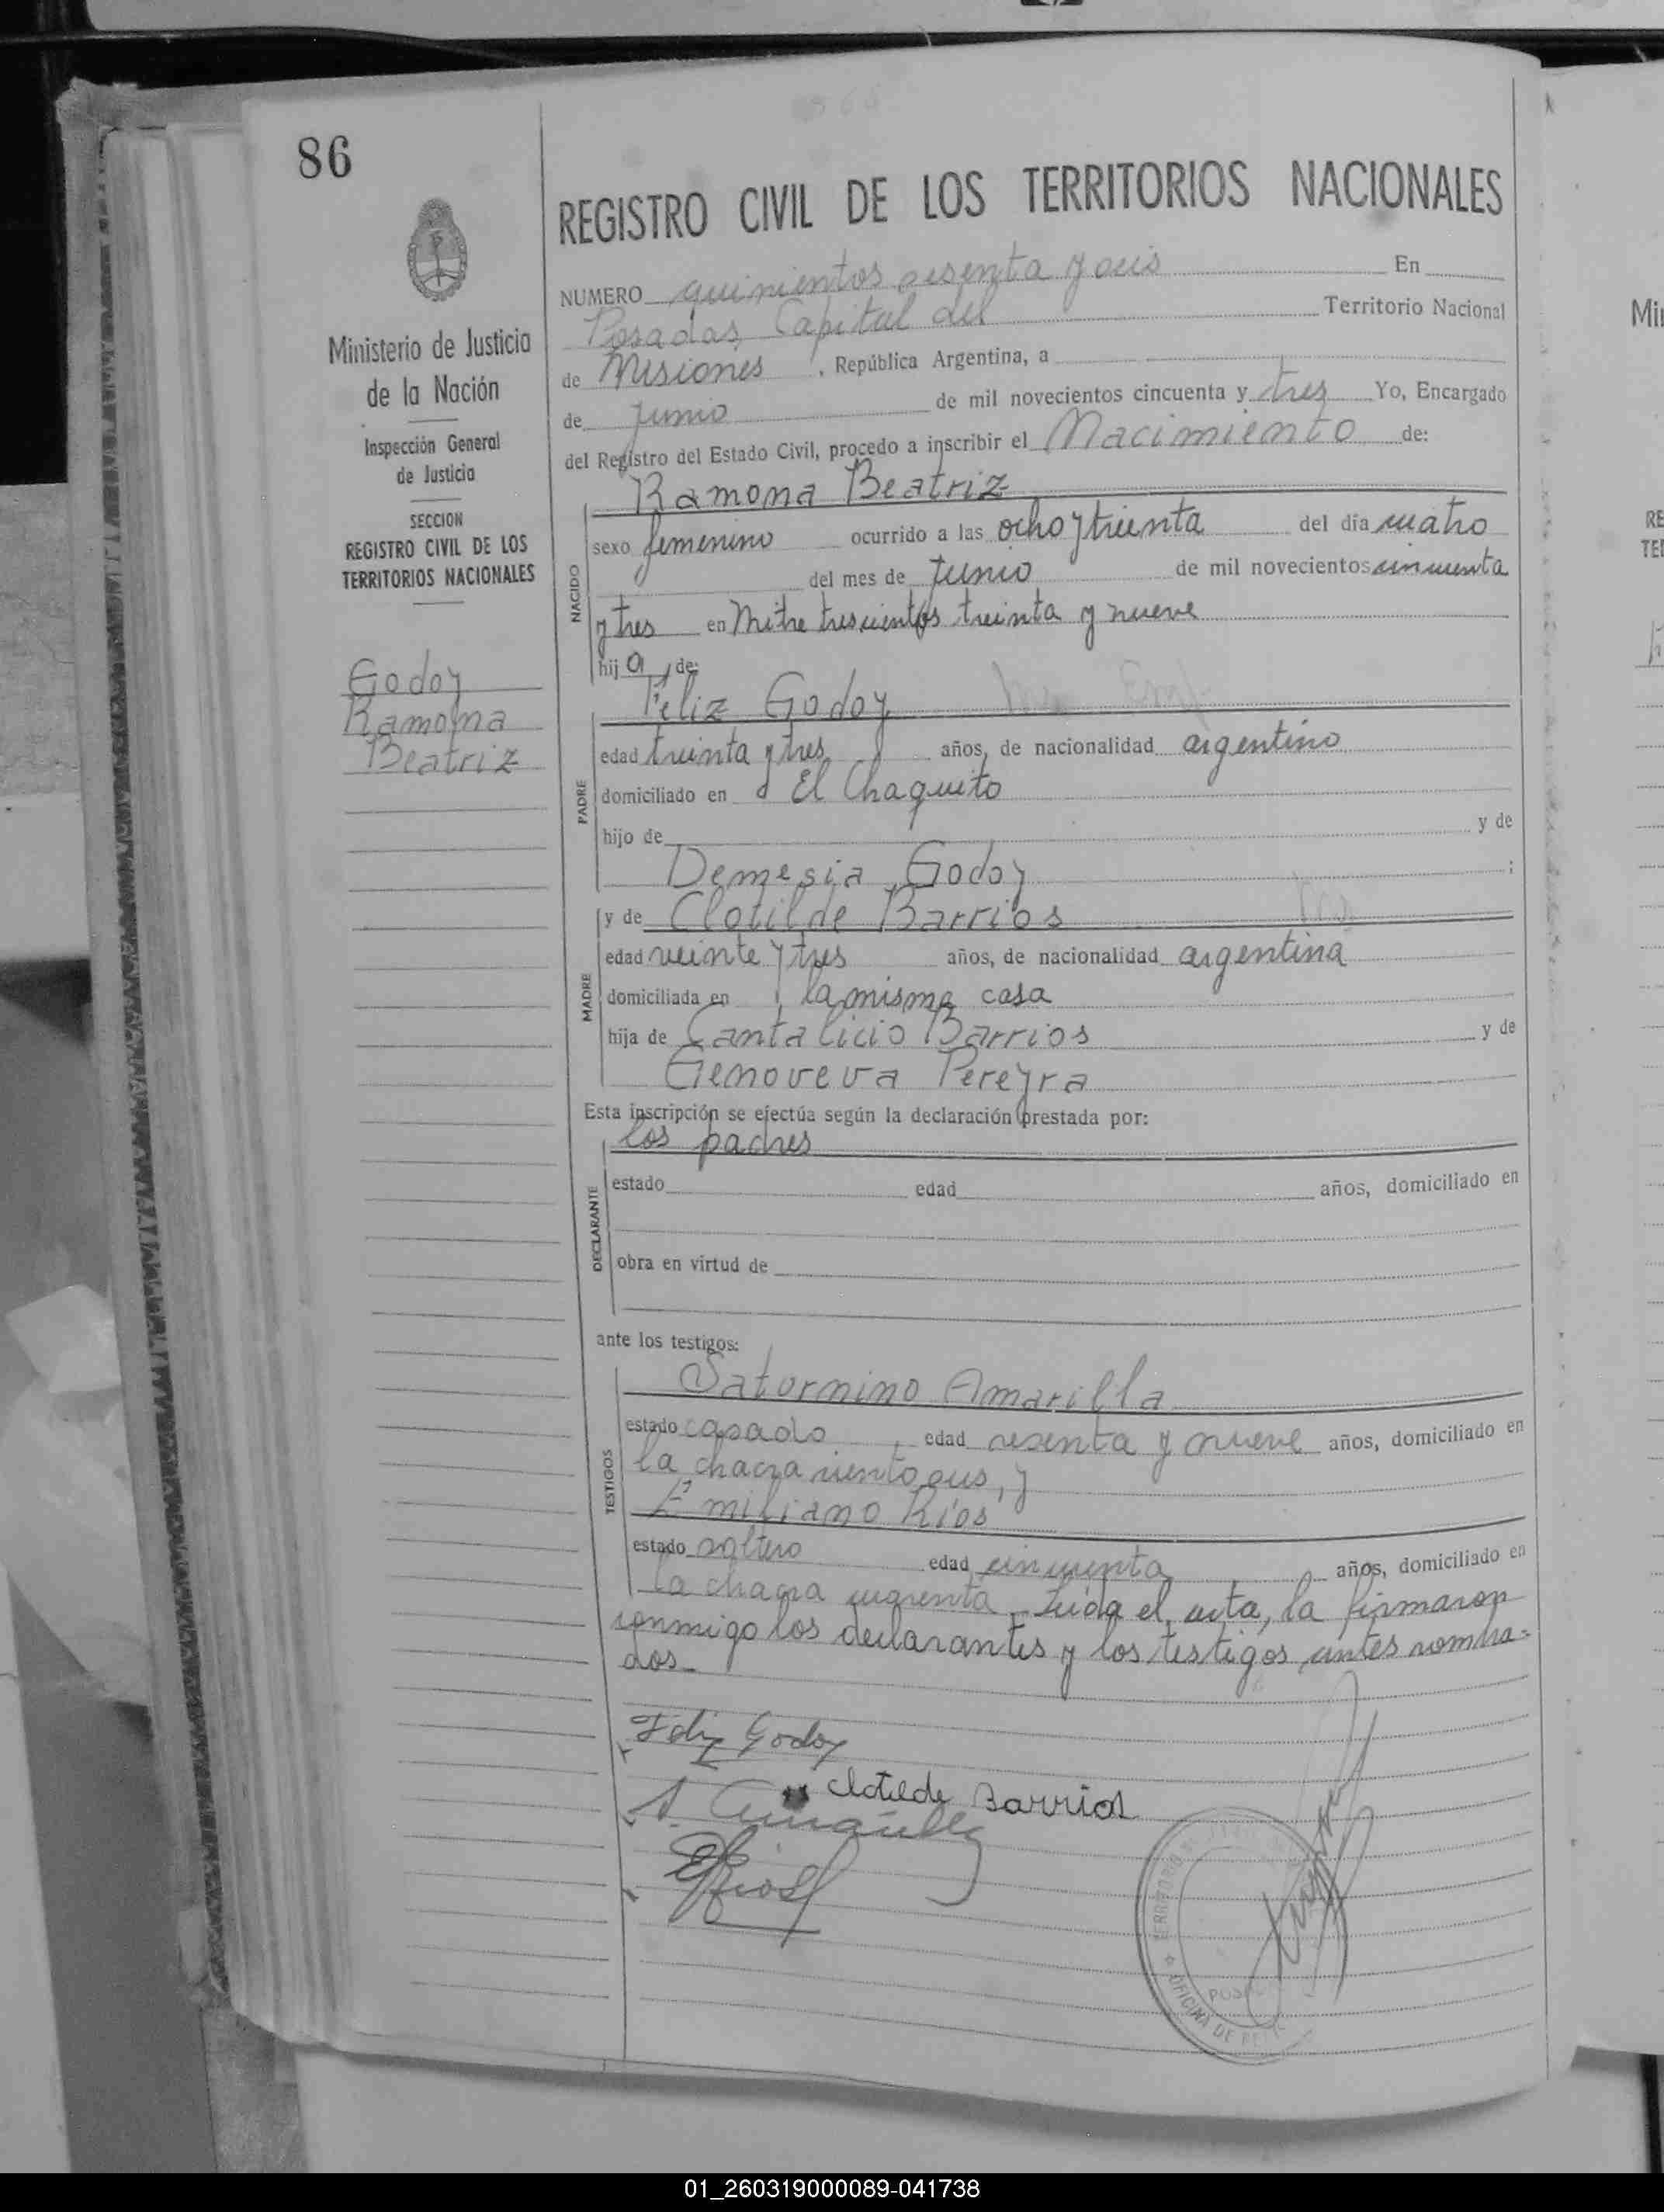 86
REGISTRO CIVIL DE LOS TERRITORIOS NACIONALES
Ministerio de Justicia
de la Nación
Inspección General
de Justicia
SECCION
REGISTRO CIVIL DE LOS
TERRITORIOS NACIONALES
Godoy
Ramona
Beatriz
NUMERO quinientos sesenta y seis En
Posadas, Capital del Territorio Nacional
de Misiones, República Argentina, a
de Junio de mil novecientos cincuenta y tres Yo, Encargado
del Registro del Estado Civil, procedo a inscribir el Nacimiento de:
NACIDO
Ramona Beatriz
sexo femenino ocurrido a las ocho y treinta del día cuatro
del mes de Junio de mil novecientos cincuenta
y tres en Mitre trescientos treinta y nueve
hija de:
PADRE
Feliz Godoy
edad treinta y tres años, de nacionalidad argentino
domiciliado en El Chaquito
hijo de y de
Demesia Godoy ;
MADRE
y de Clotilde Barrios
edad veinte y tres años, de nacionalidad argentina
domiciliada en la misma casa
hija de Cantalicio Barrios y de
Genoveva Pereyra
Esta inscripción se efectúa según la declaración prestada por:
DECLARANTE
los padres
estado edad años, domiciliado en
obra en virtud de
ante los testigos:
TESTIGOS
Saturnino Amarilla
estado casado, edad sesenta y nueve años, domiciliado en
la chacra ciento seis, y
Emiliano Ríos
estado soltero edad cincuenta años, domiciliado en
la chacra cuarenta. Leída el acta, la firmaron
conmigo los declarantes y los testigos antes nombra=
dos.
Feliz Godoy
Clotilde Barrios
S. Amarilla
ERios
TERRITORIO
OFICINA DE
01_260319000089-041738